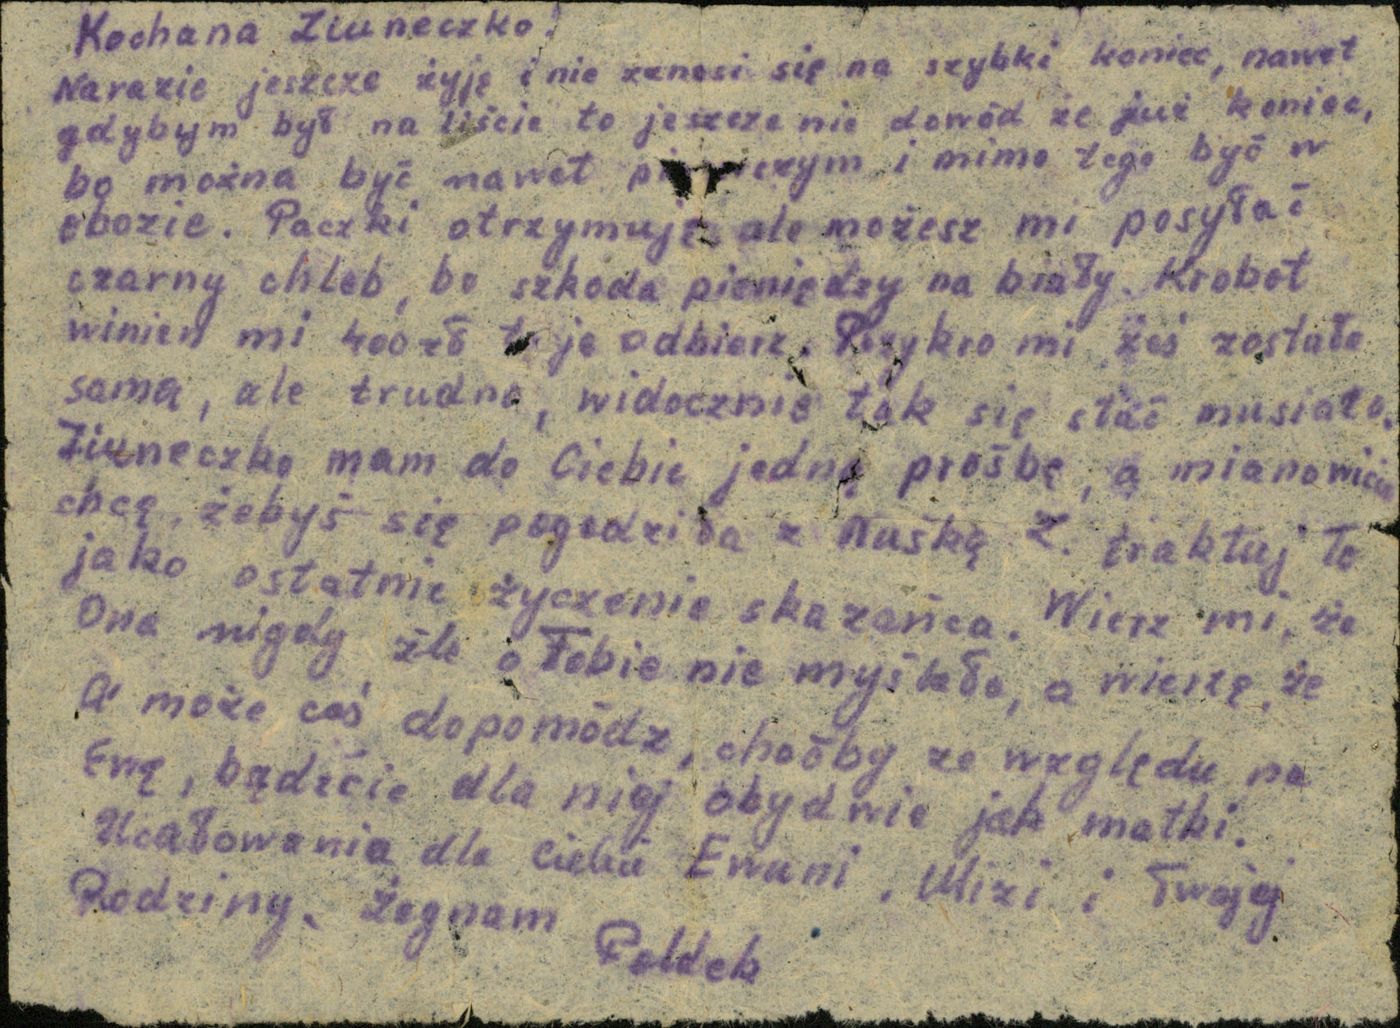 Kochana Ziuneczko!
Narazie jeszcze żyję i nie zanosi się na szybki koniec, nawet
gdybym był na liście to jeszcze nie dowód że już koniec,
bo można być nawet i mimo tego być w
obozie. Paczki otrzymuję, ale możesz mi posyłać
czarny chleb, bo szkoda pieniędzy na biały. Krobot
winien mi 400 zł to je odbierz. Przykro mi żeś została
samą, ale trudno, widocznie tak się stać musiało.
Ziuneczko mam do Ciebie jedną prośbę, a mianowicie
chcę, żebyś się pogodziła z Nuśką Z. traktuj to
jako ostatnie życzenie skazańca. Wierz mi, że
Ona nigdy źle o Tobie nie myślała, a wierzę, że
Ci może coś dopomódz, choćby ze względu na
Ewę, bądźcie dla niej obydwie jak matki.
Ucałowania dla Ciebie Ewuni, Mizi i Twojej
Rodziny. Żegnam
Poldek